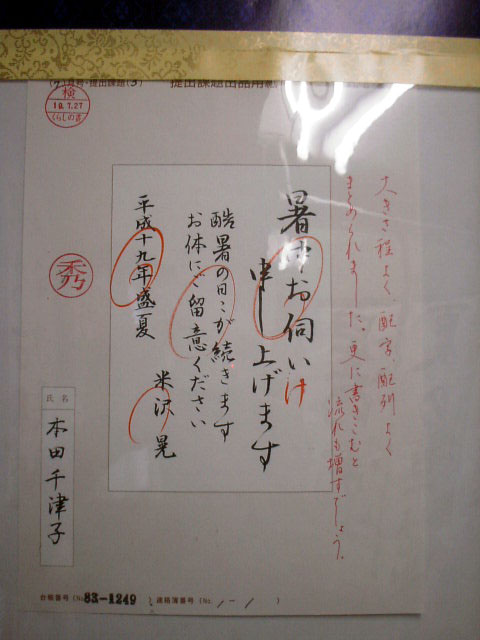 提出課題(3)
提出課題出品用紙
検
19.7.27
くらしの書
大きさ程よく、配字、配列よく
まとめられました。更に書きこむと
流れも増すでしょう。
暑中お伺い
け
申し上げます
酷暑の日々が続きます
お体にご留意ください
平成十九年盛夏
米沢晃
秀
氏名
本田千津子
台帳番号(No.83-1249)連絡簿番号(No. 1-1 )